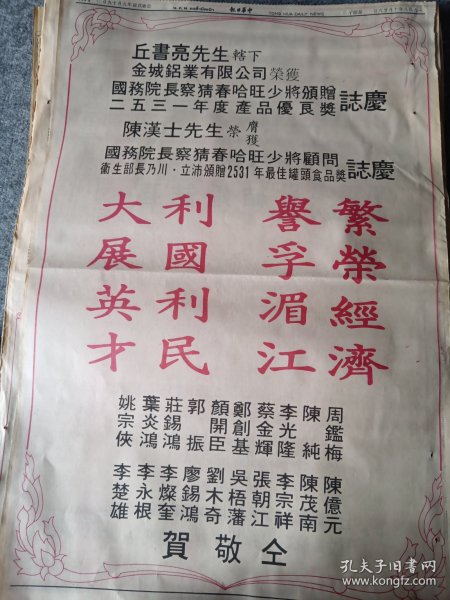 中華日報
TONG HUA DAILY NEWS
丘書亮先生轄下
金城鋁業有限公司榮獲
國務院長察猜春哈旺少將頒贈
二五三一年度產品優良獎
誌慶
陳漢士先生榮膺獲
國務院長察猜春哈旺少將顧問
衛生部長乃川·立沛頒贈2531年最佳罐頭食品獎
誌慶
繁榮經濟
譽孚湄江
利國利民
大展英才
周鑑梅
陳純
李光隆
蔡金輝
鄭創基
顏開臣
郭振
莊錫鴻
葉炎鴻
姚宗俠
陳億元
陳茂南
李宗祥
張朝江
吳梧藩
劉木奇
廖錫鴻
李燦奎
李永根
李楚雄
仝敬賀
孔夫子旧书网
www.kongfz.com